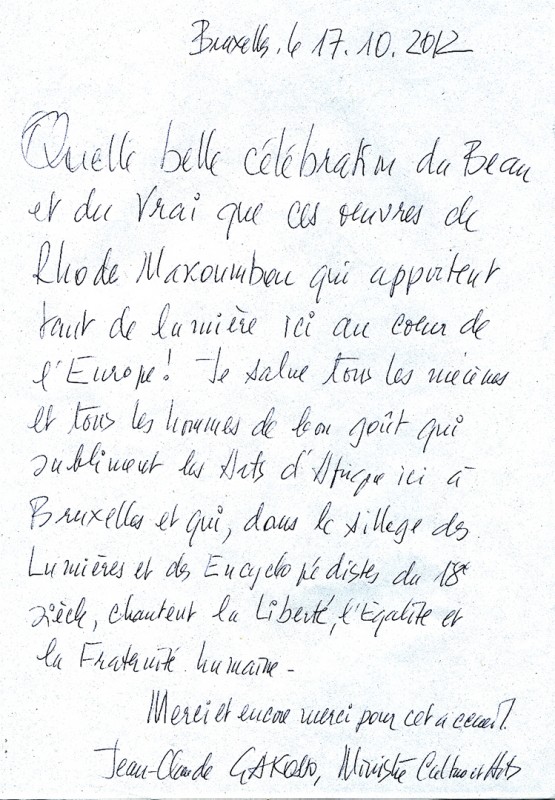 Bruxelles, le 17.10.2012
Quelle belle célébration du Beau
et du Vrai que ces oeuvres de
Rhode Makoumbou qui apportent
tant de lumière ici au coeur de
l'Europe! Je salue tous les mécènes
et tous les hommes de bon goût qui
subliment les Arts d'Afrique ici à
Bruxelles et qui, dans le sillage des
Lumières et des Encyclopédistes du 18e
siècle, chantent la Liberté, l'Egalité et
la Fraternité humaine -
Merci et encore merci pour cet accueil.
Jean-Claude GAKOSSO, Ministre Culture et Arts